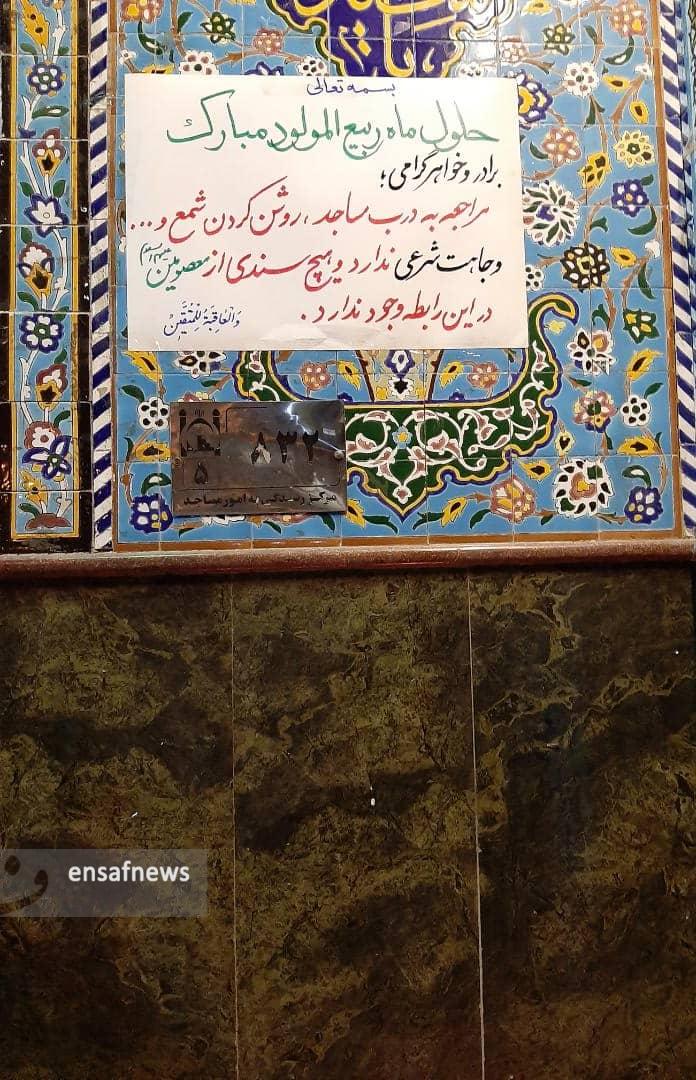 بسمه تعالی
حلول ماه ربیع المولود مبارک
برادر و خواهر گرامی؛
مراجعه به درب مساجد، روشن کردن شمع و...
وجاهت شرعی ندارد و هیچ سندی از معصومین علیهم السلام
در این رابطه وجود ندارد.
وَالْعَاقِبَةُ لِلْمُتَّقِینَ
۸۳۲
۵
مرکز رسیدگی به امور مساجد
ensafnews